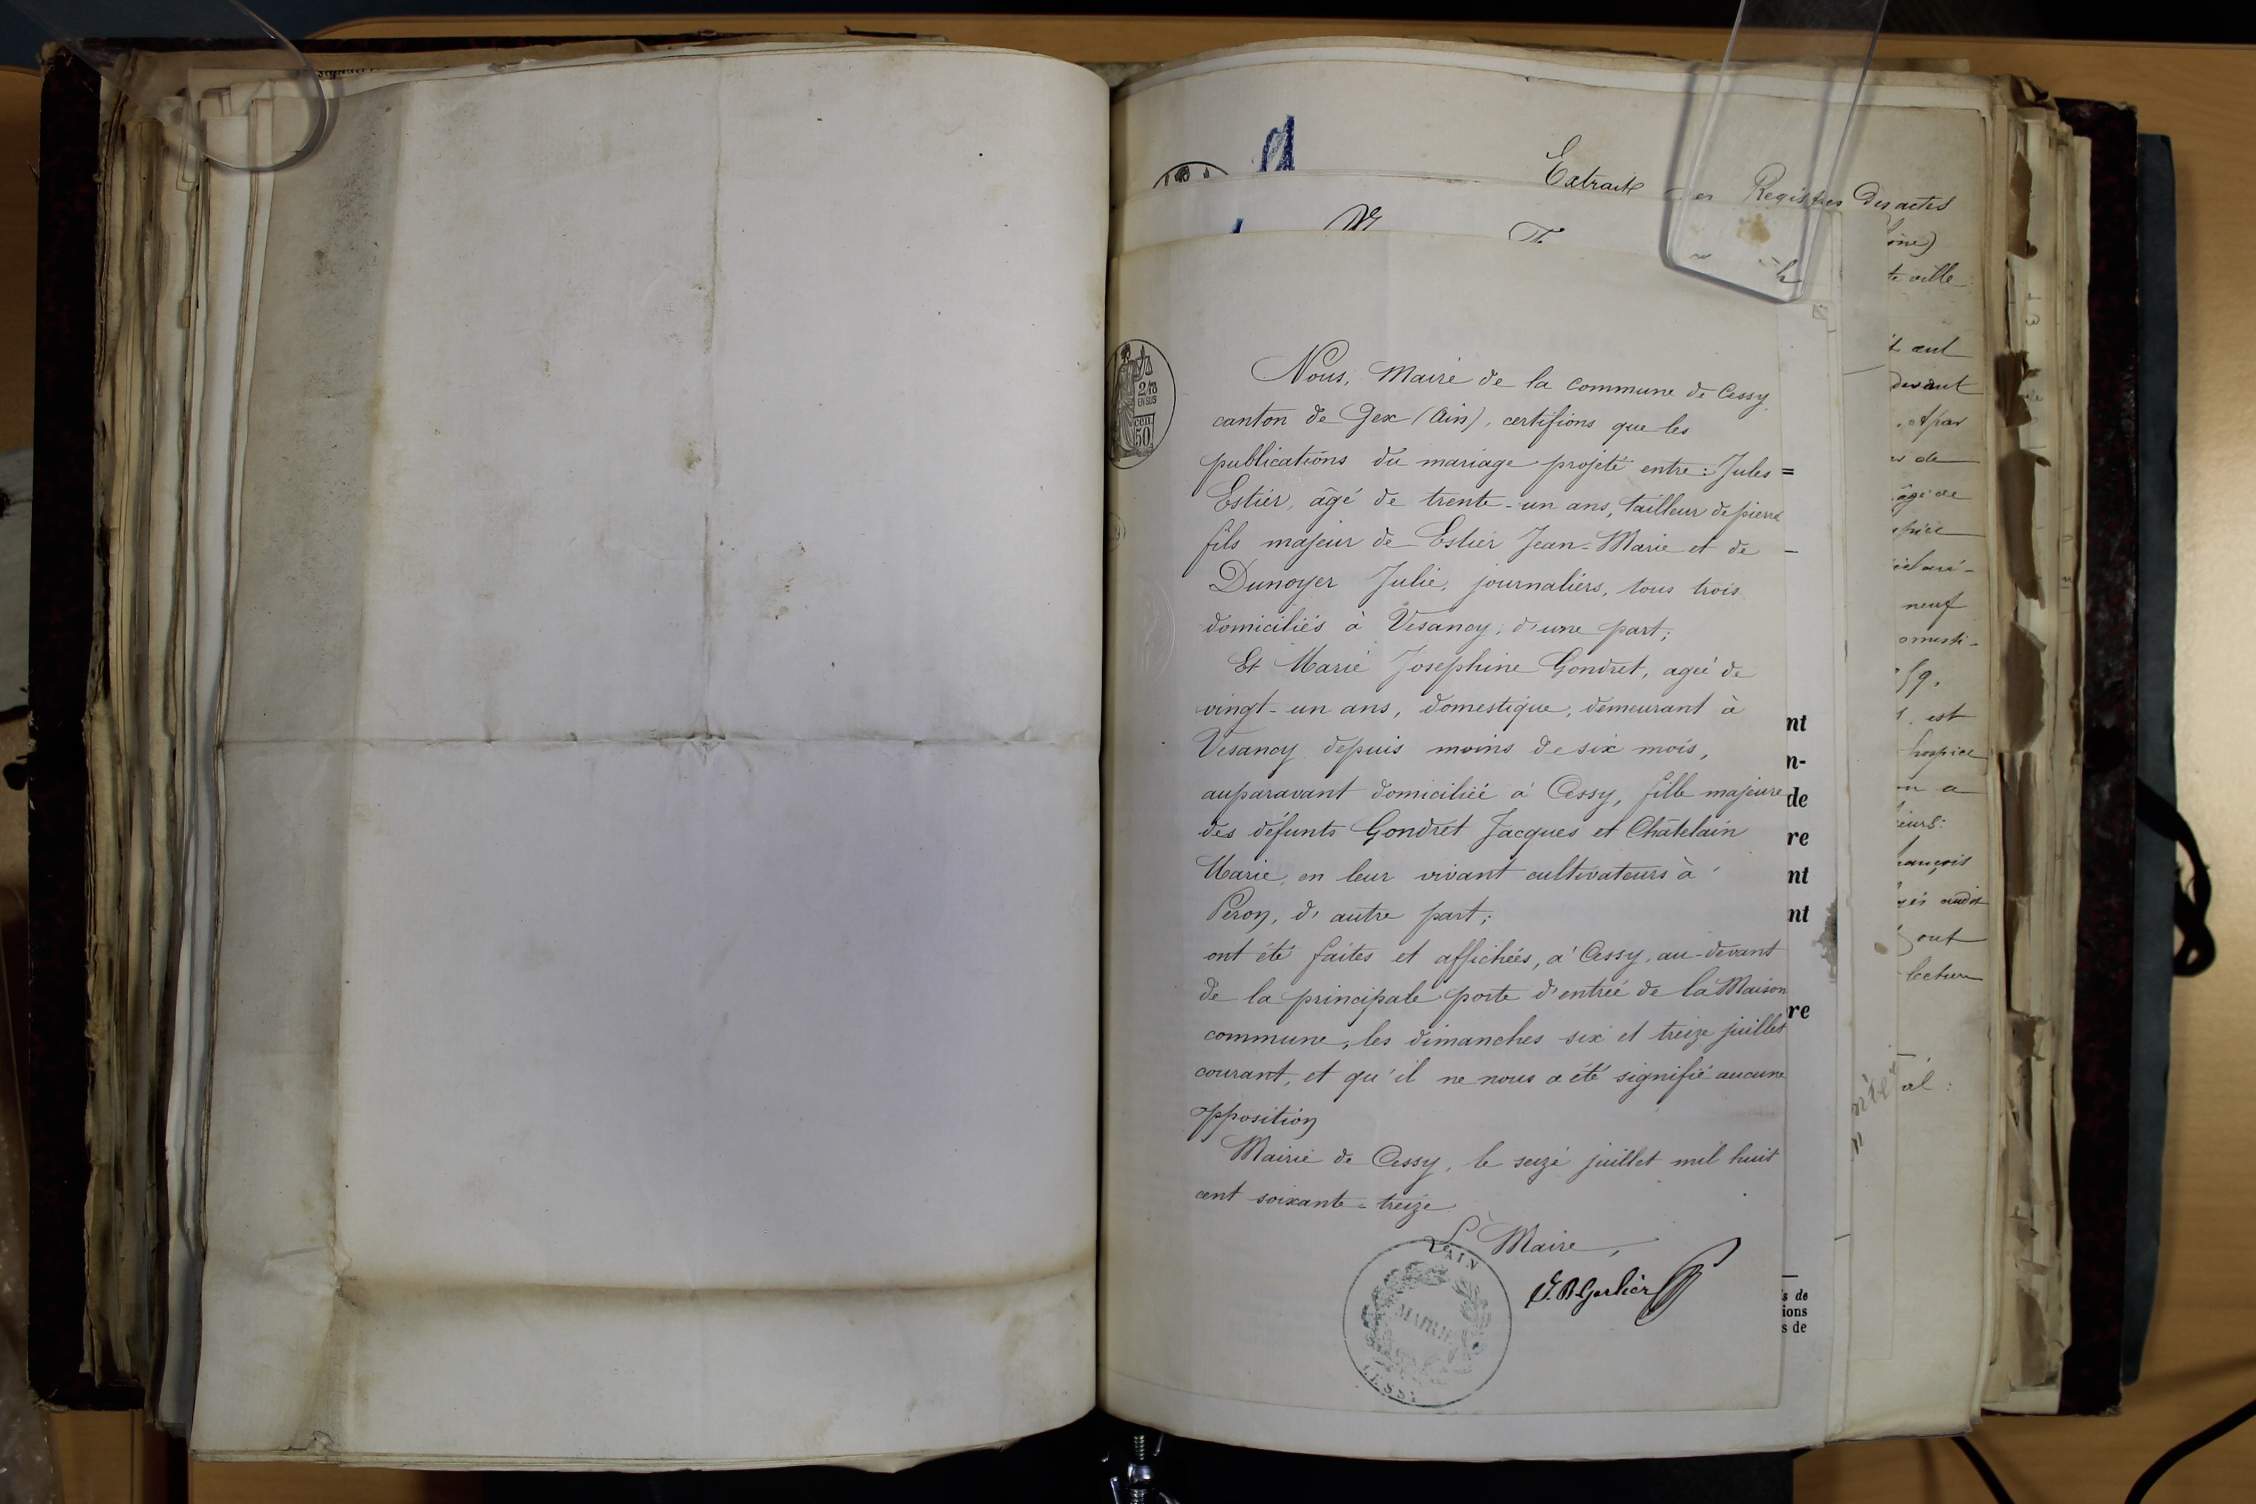 Extrait des Registres des actes
oine)
te ville
Nous, Maire de la commune de Cessy
canton de Gex (Ain), certifions que les
publications du mariage projeté entre : Jules =
Estier, âgé de trente-un ans, tailleur de pierre
fils majeur de Estier Jean-Marie et de —
Dunoyer Julie, journaliers, tous trois
domiciliés à Vesancy, d'une part;
Et Marie Josephine Gondret, agée de
vingt-un ans, domestique, demeurant à
Vesancy depuis moins de six mois,
auparavant domiciliée à Cessy, fille majeure
des défunts Gondret Jacques et Châtelain
Marie, en leur vivant cultivateurs à
Peron, d'autre part;
ont été faites et affichées, à Cessy, au-devant
de la principale porte d'entrée de la Maison
commune, les dimanches six et treize juillet
courant, et qu'il ne nous a été signifié aucune
opposition
Mairie de Cessy, le seize juillet mil huit
cent soixante-treize
Le Maire,
2/10
EN SUS
cen.
50
AIN
MAIRIE
CESSY
nt
n-
de
re
nt
nt
re
s de
ions
s de
devant
neuf
est
hospice
out
lecture